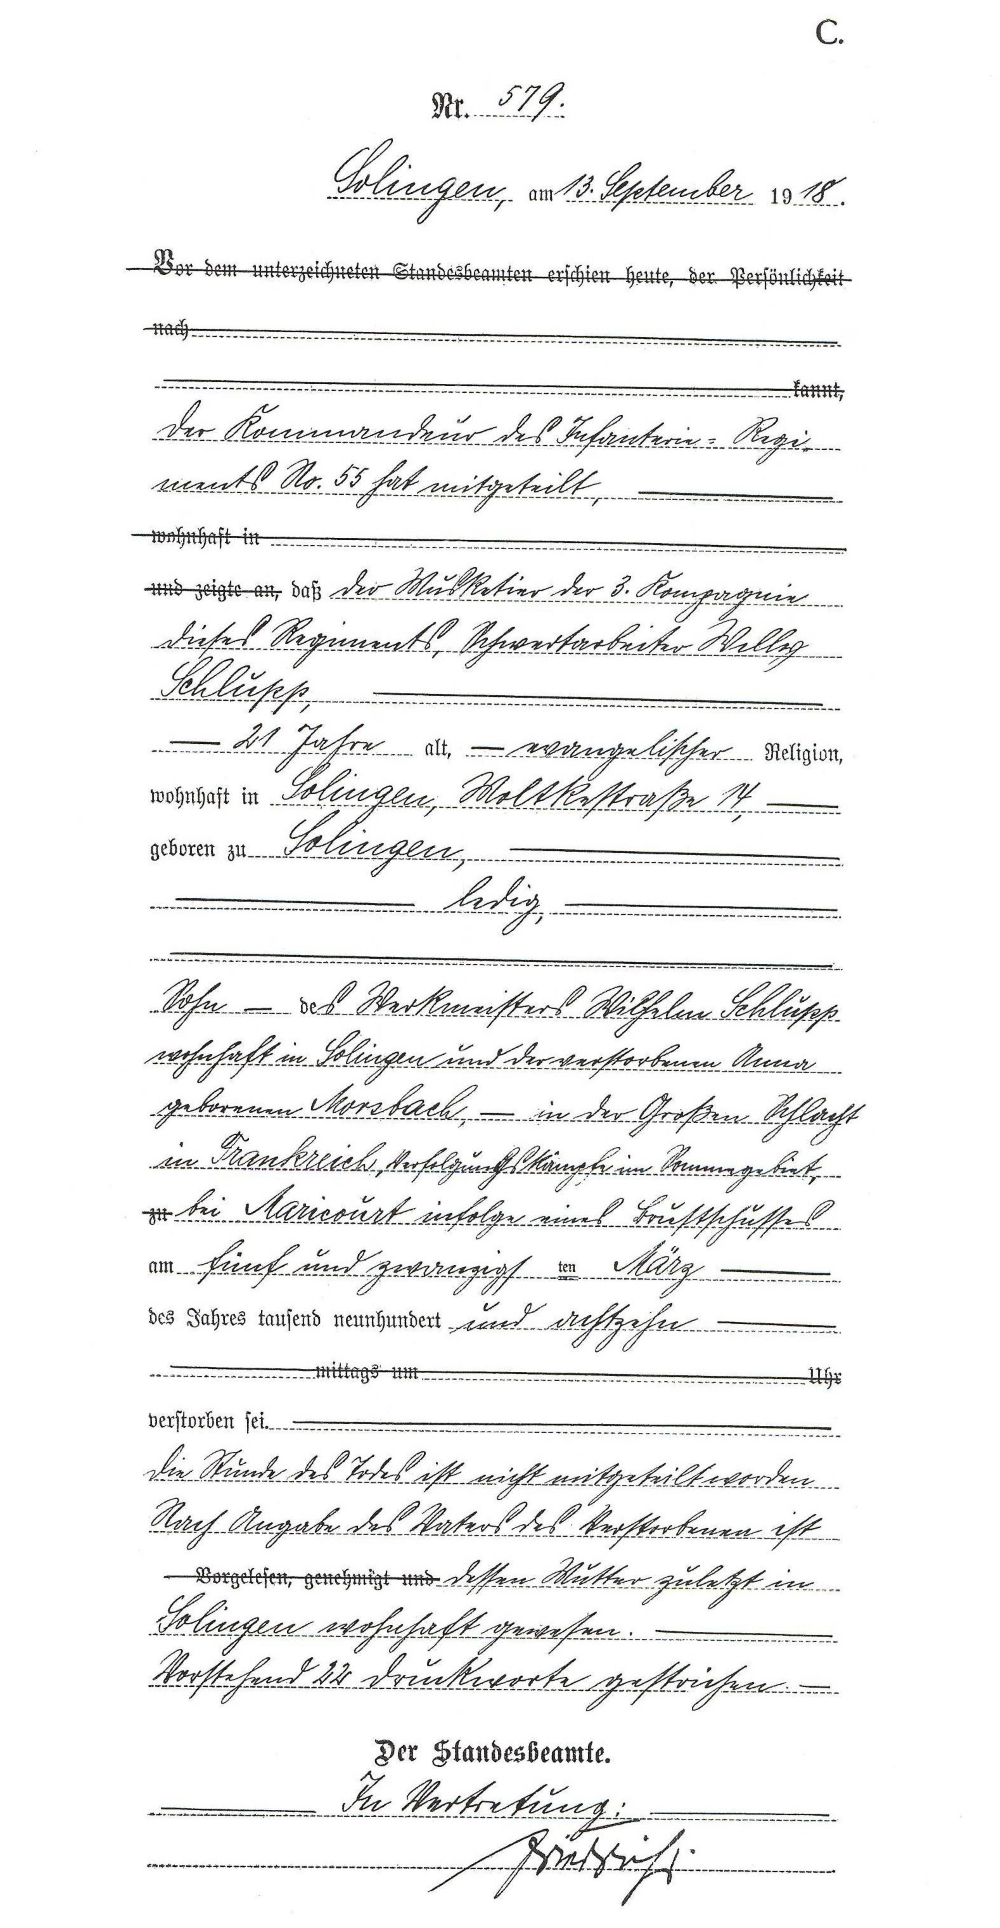 C.
Nr. 579.
Solingen, am 13. September 1918.
Vor dem unterzeichneten Standesbeamten erschien heute, der Persönlichkeit
nach
kannt,
der Kommandeur des Infanterie-Regi-
ments No. 55 hat mitgeteilt,
wohnhaft in
und zeigte an, daß der Musketier der 3. Kompagnie
dieses Regiments, Schwertarbeiter Willy
Schlupp,
21 Jahre alt, evangelischer Religion,
wohnhaft in Solingen, Moltkestraße 14,
geboren zu Solingen,
ledig,
Sohn des Werkmeisters Wilhelm Schlupp
wohnhaft in Solingen und der verstorbenen Anna
geborenen Morsbach, in der Großen Schlacht
in Frankreich, Verfolgungskämpfe im Sommegebiet,
zu bei Maricourt infolge eines Brustschusses
am fünf und zwanzigsten März
des Jahres tausend neunhundert und achtzehn
mittags um Uhr
verstorben sei.
Die Stunde des Todes ist nicht mitgeteilt worden
Nach Angabe des Vaters des Verstorbenen ist
Vorgelesen, genehmigt und dessen Mutter zuletzt in
Solingen wohnhaft gewesen.
Vorstehend 22 Druckworte gestrichen.
Der Standesbeamte.
In Vertretung: